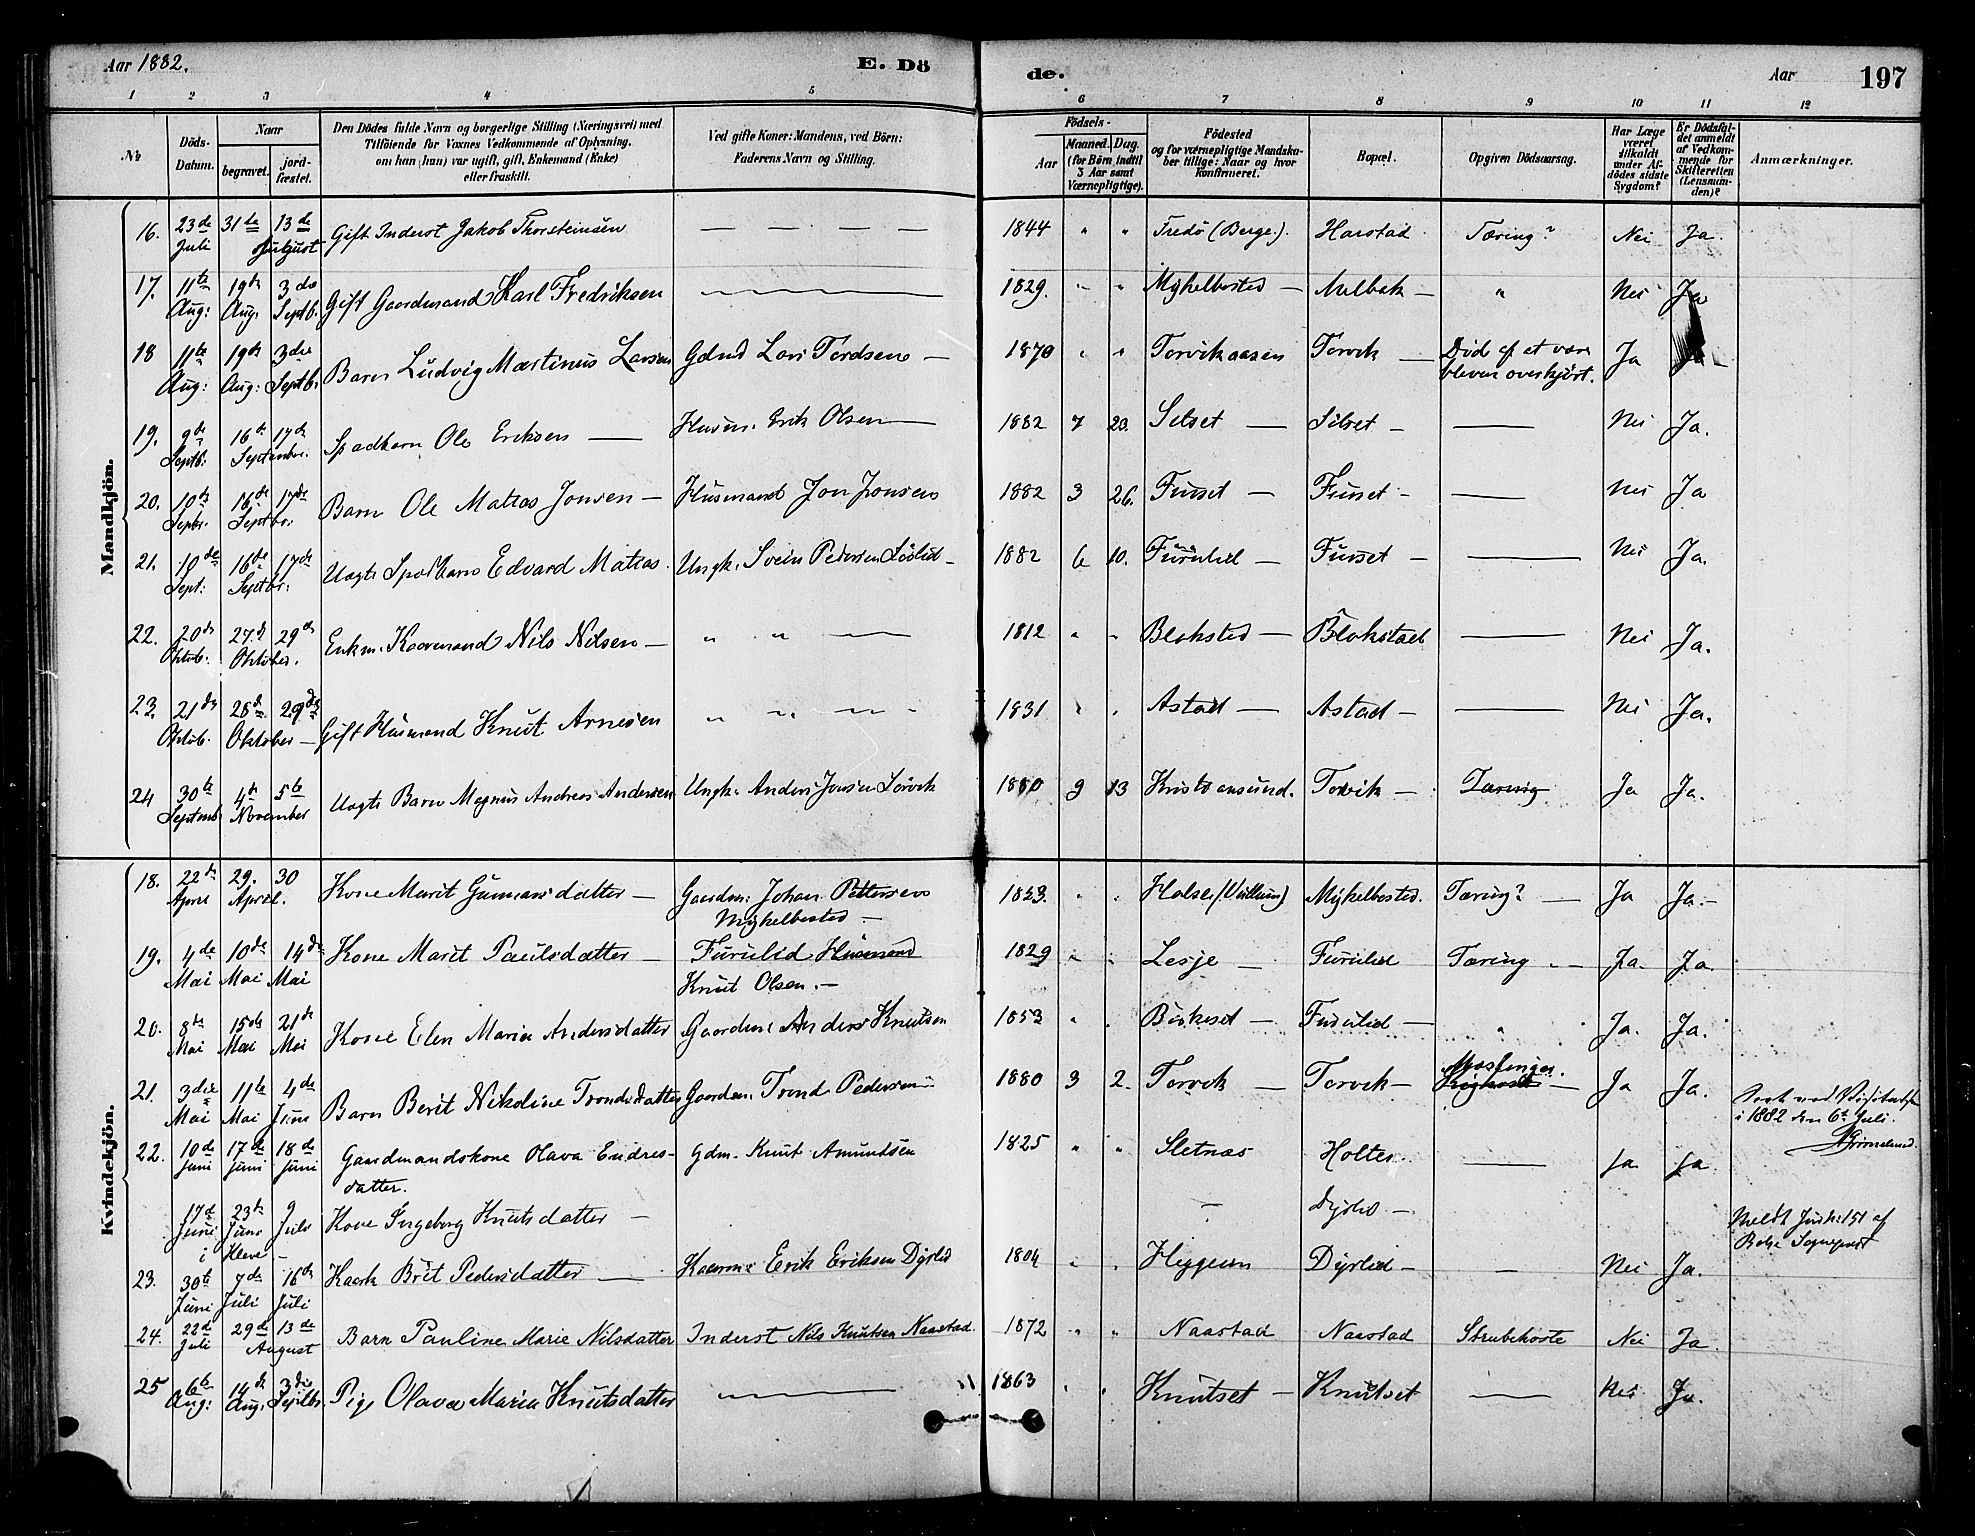 Aar 1882.
E. Dö
de.
Aar
197
1 2 3 4 5 6 7 8 9 10 11 12
№
Döds-Datum.
Naar
begravet.
jordfæstet.
Den Dödes fulde Navn og borgerlige Stilling (Næringsvei) med
Tilföiende for Voxnes Vedkommende af Oplysning,
om han (hun) var ugift, gift, Enkemand (Enke)
eller fraskilt.
Ved gifte Koner: Mandens, ved Börn:
Faderens Navn og Stilling.
Födsels-
Aar
Maaned. Dag.
(for Börn indtil
3 Aar samt
Værnepligtige).
Födested
og for værnepligtige Mandskaber tillige: Naar og hvor
konfirmeret.
Bopæl.
Opgiven Dödsaarsag.
Har Læge
været
tilkaldt
under Afdödes sidste
Sygdom?
Er Dödsfaldet anmeldt
af Vedkommende for
Skifteretten
(Lensmanden)?
Anmærkninger.
Mandkjön.
16. 23de Juli 31te Juli 13de August Gift Inderst Jakob Thorsteinsen — — — — 1844 " " Fredö (Berge). Harstad Tæring? Nei Ja.
17. 11te Aug: 19de Aug. 3die Septb. Gift Gaardmand Karl Fredriksen — 1829. " " Myhelbosted — Melbak — " Nei Ja
18 11te Aug: 19de Aug: 3die Septb. Barn Ludvig Martinus Larsen Gdmd Lars Tordsen — 1870 " " Torvikaasen Torvik — Död af at være bleven overkjört. Ja Ja
19. 9de Septb: 16de 17de September. Spædbarn Ole Eriksen — Husm. Erik Olsen — 1882 7 23. Silset — Silset — — Nei Ja.
20. 10de Septbr. 16de 17de Septbr: Barn Ole Matias Jonsen — Husmand Jon Jonsen 1882 3 26. Furset — Furset — — Nei Ja
21. 10de Sept: 16de 17de Septbr: Uægte Spædbarn Edvard Matias. Ungk. Svein Pedersen Löslid — 1882 6 10. Furulid — Furset — — Nei Ja.
22. 20de Oktob. 27de 29de Oktober. Enkm. Kaarmand Nils Nilsen — " " — 1812 " " Blakstad — Blakstad — Nei Ja.
23. 21de Oktob. 28de 29de Oktober — Gift Husmand Knut Arnesen " " " " 1831 " " Astad — Astad — — Nei Ja.
24 30te Septemb 4de 5te November Uægte Barn Magnus Andreas Andersen Ungk. Anders Jonsen Torvik 1880 9 13 Kristiansund. Torvik — Tæring Ja Ja.
Kvindekjön.
18. 22de April 29. 30 April. Kone Marit Gunnarsdatter — Gaardm: Johan Pettersen Myhelbosted — 1823. " " Halse Myhelbosted. Tæring? — Ja Ja.—
19. 4de Mai 10de Mai 14de Mai Kone Marit Paulsdatter — Furulid Husmand Knut Olsen. — 1829 " " Lesje — Furulid Tæring — Ja. Ja.
20. 8de Mai 15de Mai 21de Mai Kone Elen Maria Andersdatter Gaardm: Anders Knutsen 1853 " " Birkeset — Furulid — " Ja. Ja.
21. 3die Mai 11te Mai 4de Juni Barn Berit Nikoline Trondsdatter Gaardm. Trond Pedersen 1880 3 2. Torvik — Torvik — Mæslinger. Kighoste — Ja Ja.
i 1882 den 6te Juli.
22. 10de Juni 17de Juni 18de Juni Gaardmandskone Olava Endresdatter. Gdm. Knut Amundsen 1825 " " Sletnæs Holten — Ja Ja
17de Juni 23de Juni 9 Juli Kone Ingeborg Knutsdatter — — —
23. 30te Juni 7de Juli 16de Juli Kaark Brit Pedersdatter — Kaarm: Erik Eriksen Dyrlid 1804 " " Heggem Dyrlid — — Nei Ja.
24. 22de Juli 29de 13de August Barn Pauline Marie Nilsdatter Inderst Nils Knutsen Naastad. 1872 " " Naastad Naastad Strubehoste Nei Ja.
25 6te Aug: 14de Aug. 3die Septbr. Pige Olava Maria Knutsdatter — 1863 " " Knutset — Knutset — Nei Ja.